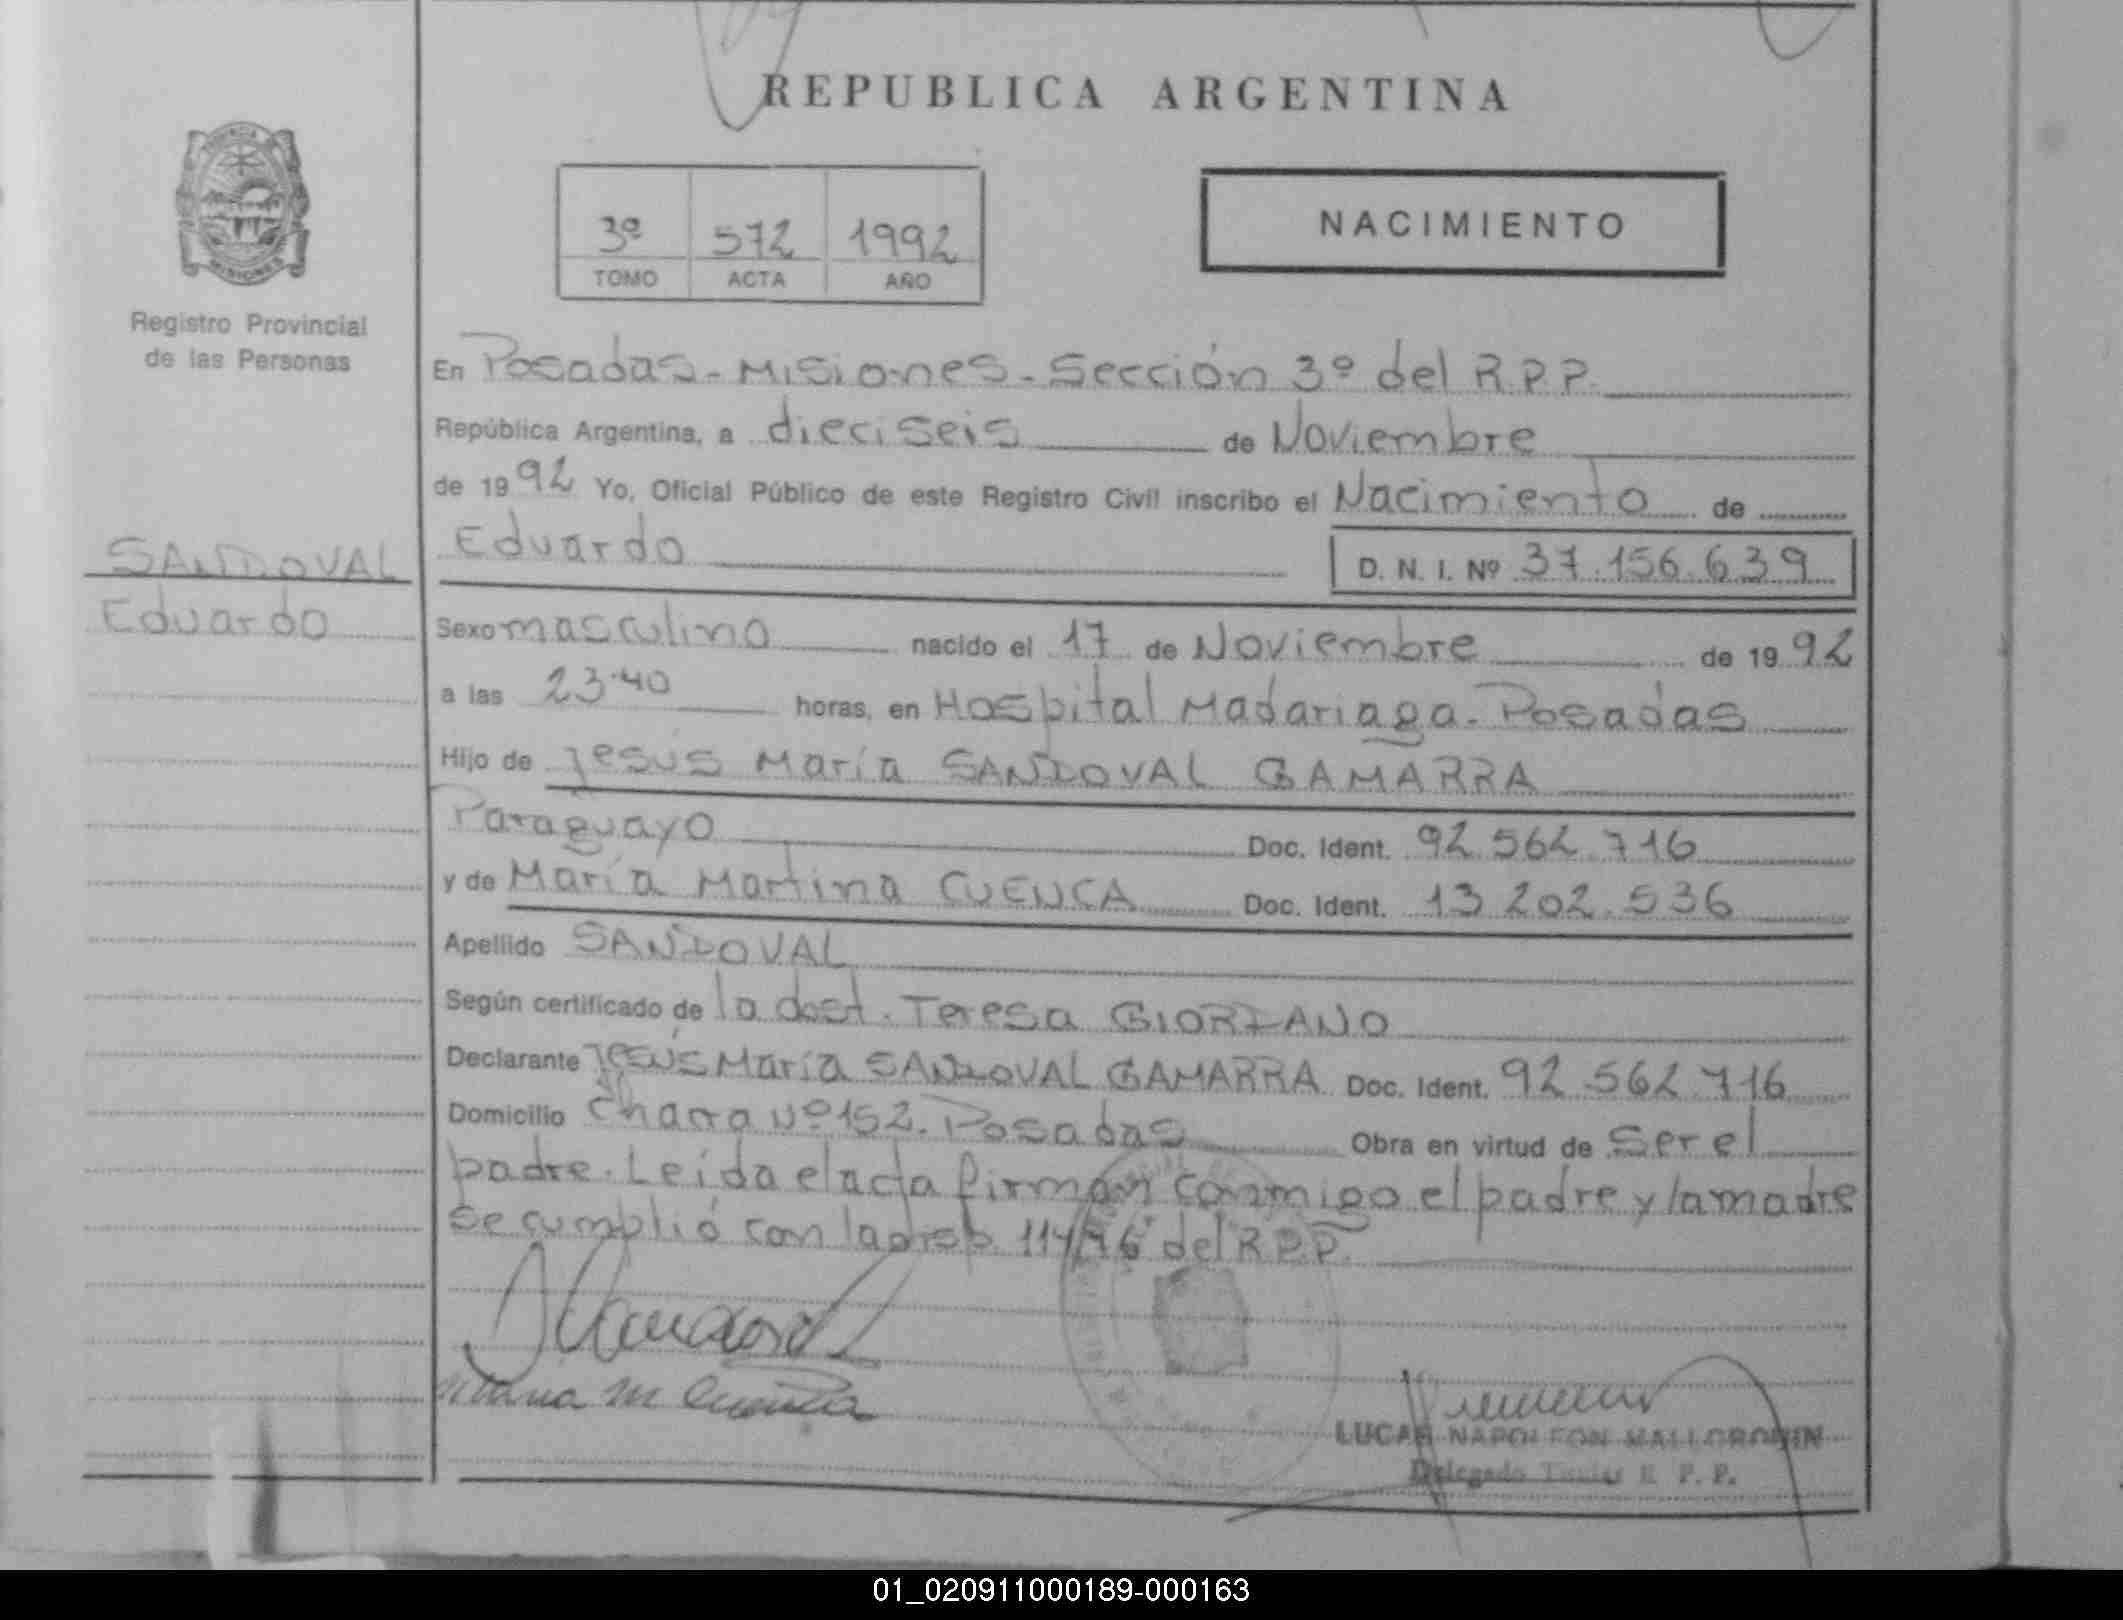 REPUBLICA ARGENTINA
3º 572 1992
TOMO ACTA AÑO
NACIMIENTO
PROVINCIA
MISIONES
Registro Provincial
de las Personas
SANDOVAL
Eduardo
En Posadas - Misiones - Sección 3º del R.P.P.
República Argentina, a dieciseis de Noviembre
de 1992 Yo, Oficial Público de este Registro Civil inscribo el Nacimiento de
Eduardo D. N. I. Nº 37.156.639
Sexo masculino nacido el 17 de Noviembre de 1992
a las 23.40 horas, en Hospital Madariaga - Posadas
Hijo de Jesús María SANDOVAL GAMARRA
Paraguayo Doc. Ident. 92.562.716
y de María Martina CUENCA Doc. Ident. 13.202.536
Apellido SANDOVAL
Según certificado de la doct. Teresa GIORDANO
Declarante Jesús María SANDOVAL GAMARRA Doc. Ident. 92.562.716
Domicilio Chacra Nº 152. Posadas Obra en virtud de ser el
padre. Leída el acta firman conmigo el padre y la madre
se cumplió con la disp. 114/76 del R.P.P.
Maria M Cuenca
LUCAS NAPOLEON MALLORQUIN
Delegado R. P. P.
01_020911000189-000163